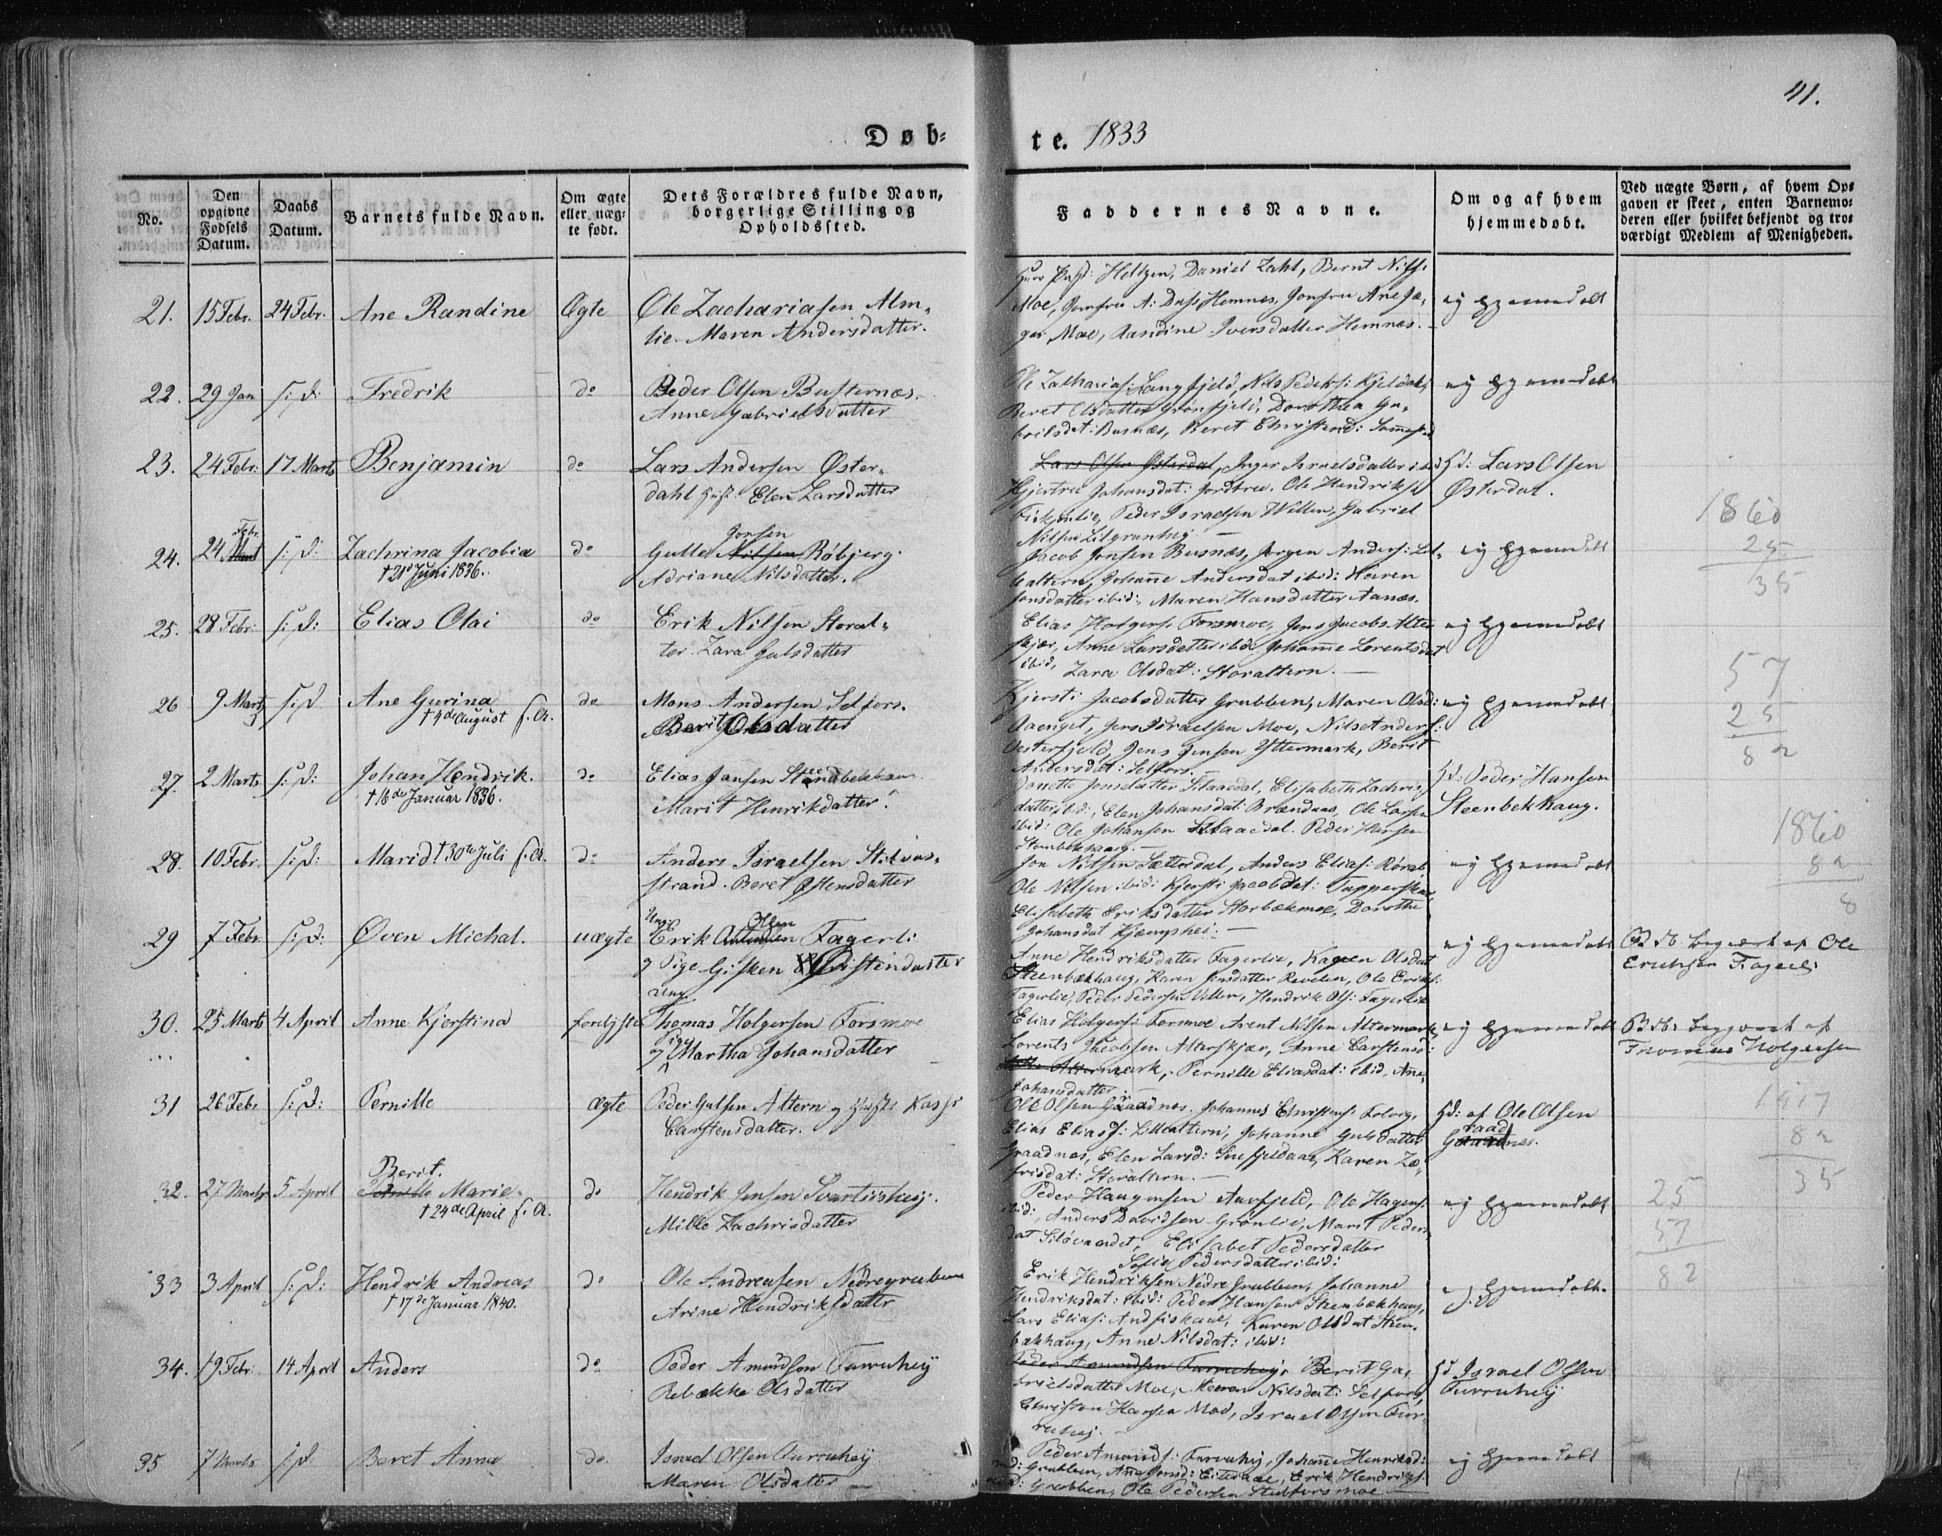 41.
Døb-
te. 1833
No.
Den opgivne Fødsels Datum.
Daabs Datum.
Barnets fulde Navn.
Om ægte eller uægte født.
Dets Forældres fulde Navn, borgerlige Stilling og Opholdssted.
Faddernes Navne.
Om og af hvem hjemmedøbt.
Ved uægte Børn, af hvem Opgaven er skeet, enten Barnemoderen eller hvilket bekjendt og troværdigt Medlem af Menigheden.
21. 15 Febr. 24 Febr. Ane Randine Ægte Ole Zachariasen Alm-
lie. Maren Andersdatter.
Heltzen, Daniel Zahl, Bernt Nils:
Moe, Jomfru A: Dass Hemnes, Jomfru Ane Jæ-
ger Moe, Randine Iversdatter Hemnes.
ej hjemmedøbt
22. 29 Jan s: D: Fredrik do Peder Olsen Busternæs.
Anne Gabrielsdatter
Ole Zacharias: Langfjeld, Nils Peders: Kjeldal,
Beret Olsdatter Grønfjeld, Dorothea Ga-
brilsdat: Busnæs, Beret Christensd:
ej hjemmedøbt
23. 24 Febr: 17 Marts Benjamin do Lars Andersen Øster-
dahl Hust: Elen Larsdatter
Lars Olsen Østerdal, Inger Israelsdatter ibid
Johansdat: Ole Hendriks:
Peder Israelsen Villen, Gabriel
Nilsen
Hd: Lars Olsen
Østerdal.
24. 24 Febr. s: D: Zachrina Jacobia do Gulle Jonsen Røbjerg.
† 21 Juni 1836.
Adriane Nilsdatter.
Jacob Jensen Busnæs, Jørgen Anders: Lil-
altern, Johanne Andersdat ibid: Karen
Jonsdatter ibid:, Maren Hansdatter Aanæs.
ej hjemmedøbt
25. 28 Febr: s: D: Elias Olai do Erik Nilsen Storal-
ter. Zara Gulsdatter
Elias Holgers: Forsmoe, Jens Jacobs: Alter
skjær, Anne Larsdatter ibid, Johanne Lorentsdat
ibid, Zara Olsdatt: Storaltern.
ej hjemmedøbt
26 9 Marts s: D. Ane Gurina do Mons Andersen Selfors.
† 4de August s. A.
Berit Olsdatter
Kjersti Jacobsdatter Grubben, Maren Olsd:
Jens Israelsen Moe, Nils Anders:
Jens Jensen Yttermark, Berit
Andersdat: Selfors.
ej hjemmedøbt
27. 2 Marts s: D: Johan Hendrik. do Elias Jansen Steenbekhaug.
† 16de Januar 1836.
Marit Henrikdatter.
Jonsdatter Elisabeth Zachris-
datter ibid:, Elen Johansdat: Brændnæs, Ole Larsen
ibid: Ole Johansen Peder Hansen
Steenbekhaug.
Hd: Peder Hansen
Steenbekhaug.
28. 10 Febr. s: D: Marid † 30te Juli s. A. do Anders Israelsen Stilvas-
strand. Beret Østensdatter
Jon Nilsen Sætterdal, Anders Elias: Røvat
Ole Nilsen ibid: Kjersti Jacobdat:
Elisabeth Eriksdatter Storbækmoe, Dorothe
Johansdat
ej hjemmedøbt
29 7 Febr s: D: Oven Michal. uægte Ung: Erik Olsen Fagerli
og Pige Gisken Christendatter
Anne Hendriksdatter Fagerlie, Karen Olsdat
Steenbækhaug, Karen Revelen, Ole Eriks:
Fagerlie, Peder Pedersen Villen, Hendrik Ols: Fagerlie
ej hjemmedøbt
af Ole
Erichsen Fagerli
30. 25 Marts 4 April Anne Kjerstina Ung Thomas Holgersen Forsmoe
og Martha Johansdatter
Elias Holgers: Forsmoe Arent Nilsen Altermark
Lorents Jacobsen Alterskjær, Anne Carstensd:
Pernille Eliasdat: ibid, Ane
Johansdatter.
ej hjemmedøbt
af
Thomas Holgersen
31 26 Febr s: D: Pernille ægte Peder Gulsen Altern og
Carstensdatter.
Ole Olsen Graadnes. Johannes Christens:
Elias Elias: Lillealtern, Johanne Gulsdatter
Graadnes, Elen Larsd: Karen Za-
krisdat: Storaltern.
Hd: af Ole Olsen
Graadnes.
32. 27 Marts 5 April Berit Marie do Hendrik Jensen Svartishej.
† 24de April s. A.
Mille Zachrisdatter
Peder Haagensen Ole Hagens:
ibid:, Anders Davidsen Grønlie, Marit Peders-
dat Elisabet Pedersdatter
Sofie Pedersdatter ibid:
ej hjemmedøbt
33 3 April s: D: Hendrik Andreas do Ole Andreasen Nedregrubben
† 17de Januar 1840.
Arine Hendriksdatter
Erik Hendriksen Nedre Grubben, Johanne
Hendriksdat: ibid: Peder Hansen Steenbækhaug,
Lars Elias: Karen Olsdat Steen-
bækhaug, Anne Nilsdat: ibid:
ej hjemmedøbt.
34. 19 Febr: 14 April Anders do Peder Amundsen Furruhej
Rebække Olsdatter
Peder Amundsen Furruhej, Berit Ga-
brielsdatter Moe, Maren Nilsdat: Selfors,
Christen Hansen Moe, Israel Olsen Fur-
ruhej.
Hd Israel Olsen
Furruhej
35 7 Marts s: D. Beret Anna do. Israel Olsen Furruhej
Maren Olsdatter
Peder Amunds: Furruhej, Johanne Henriksd:
Grubben, Ane Jonsd: Erik Hendriks:
Grubben, Ole Pedersen Stubforsmoe
ej hjemmedøbt
1860
25
35
57
25
82
1860
82
8
1917
82
35
25
57
82